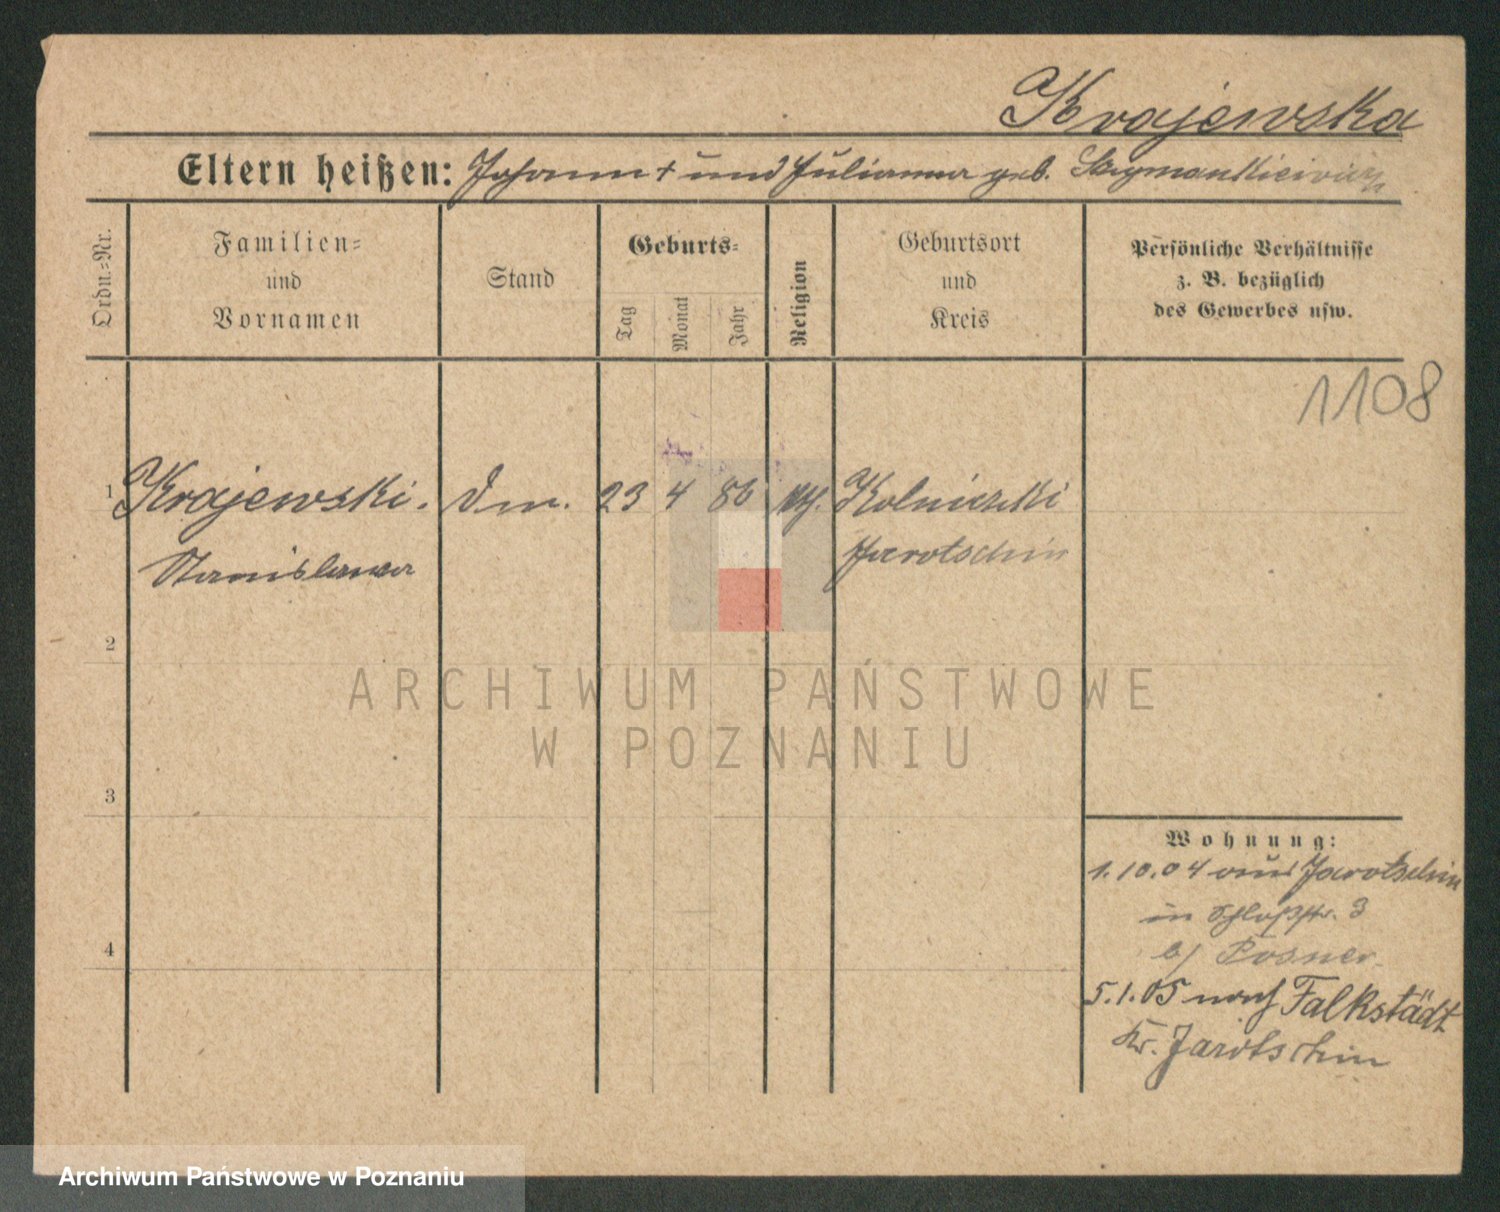 Krajewska
Eltern heißen: Johann + und Julianna geb. Szymankiewicz
Ordn.=Nr.
Familien=
und
Vornamen
Stand
Geburts=
Tag
Monat
Jahr
Religion
Geburtsort
und
Kreis
Persönliche Verhältnisse
z. B. bezüglich
des Gewerbes usw.
1108
1 Krajewski. 23 4 86 kth. Kolniczki
Stanislawa Jarotschin
2
ARCHIWUM PAŃSTWOWE
W POZNANIU
3
Wohnung:
1.10.04 aus Jarotschin
in Schloßstr. 3
b/ Posner.
4
5.1.05 nach Falkstädt
Kr. Jarotschin
Archiwum Państwowe w Poznaniu